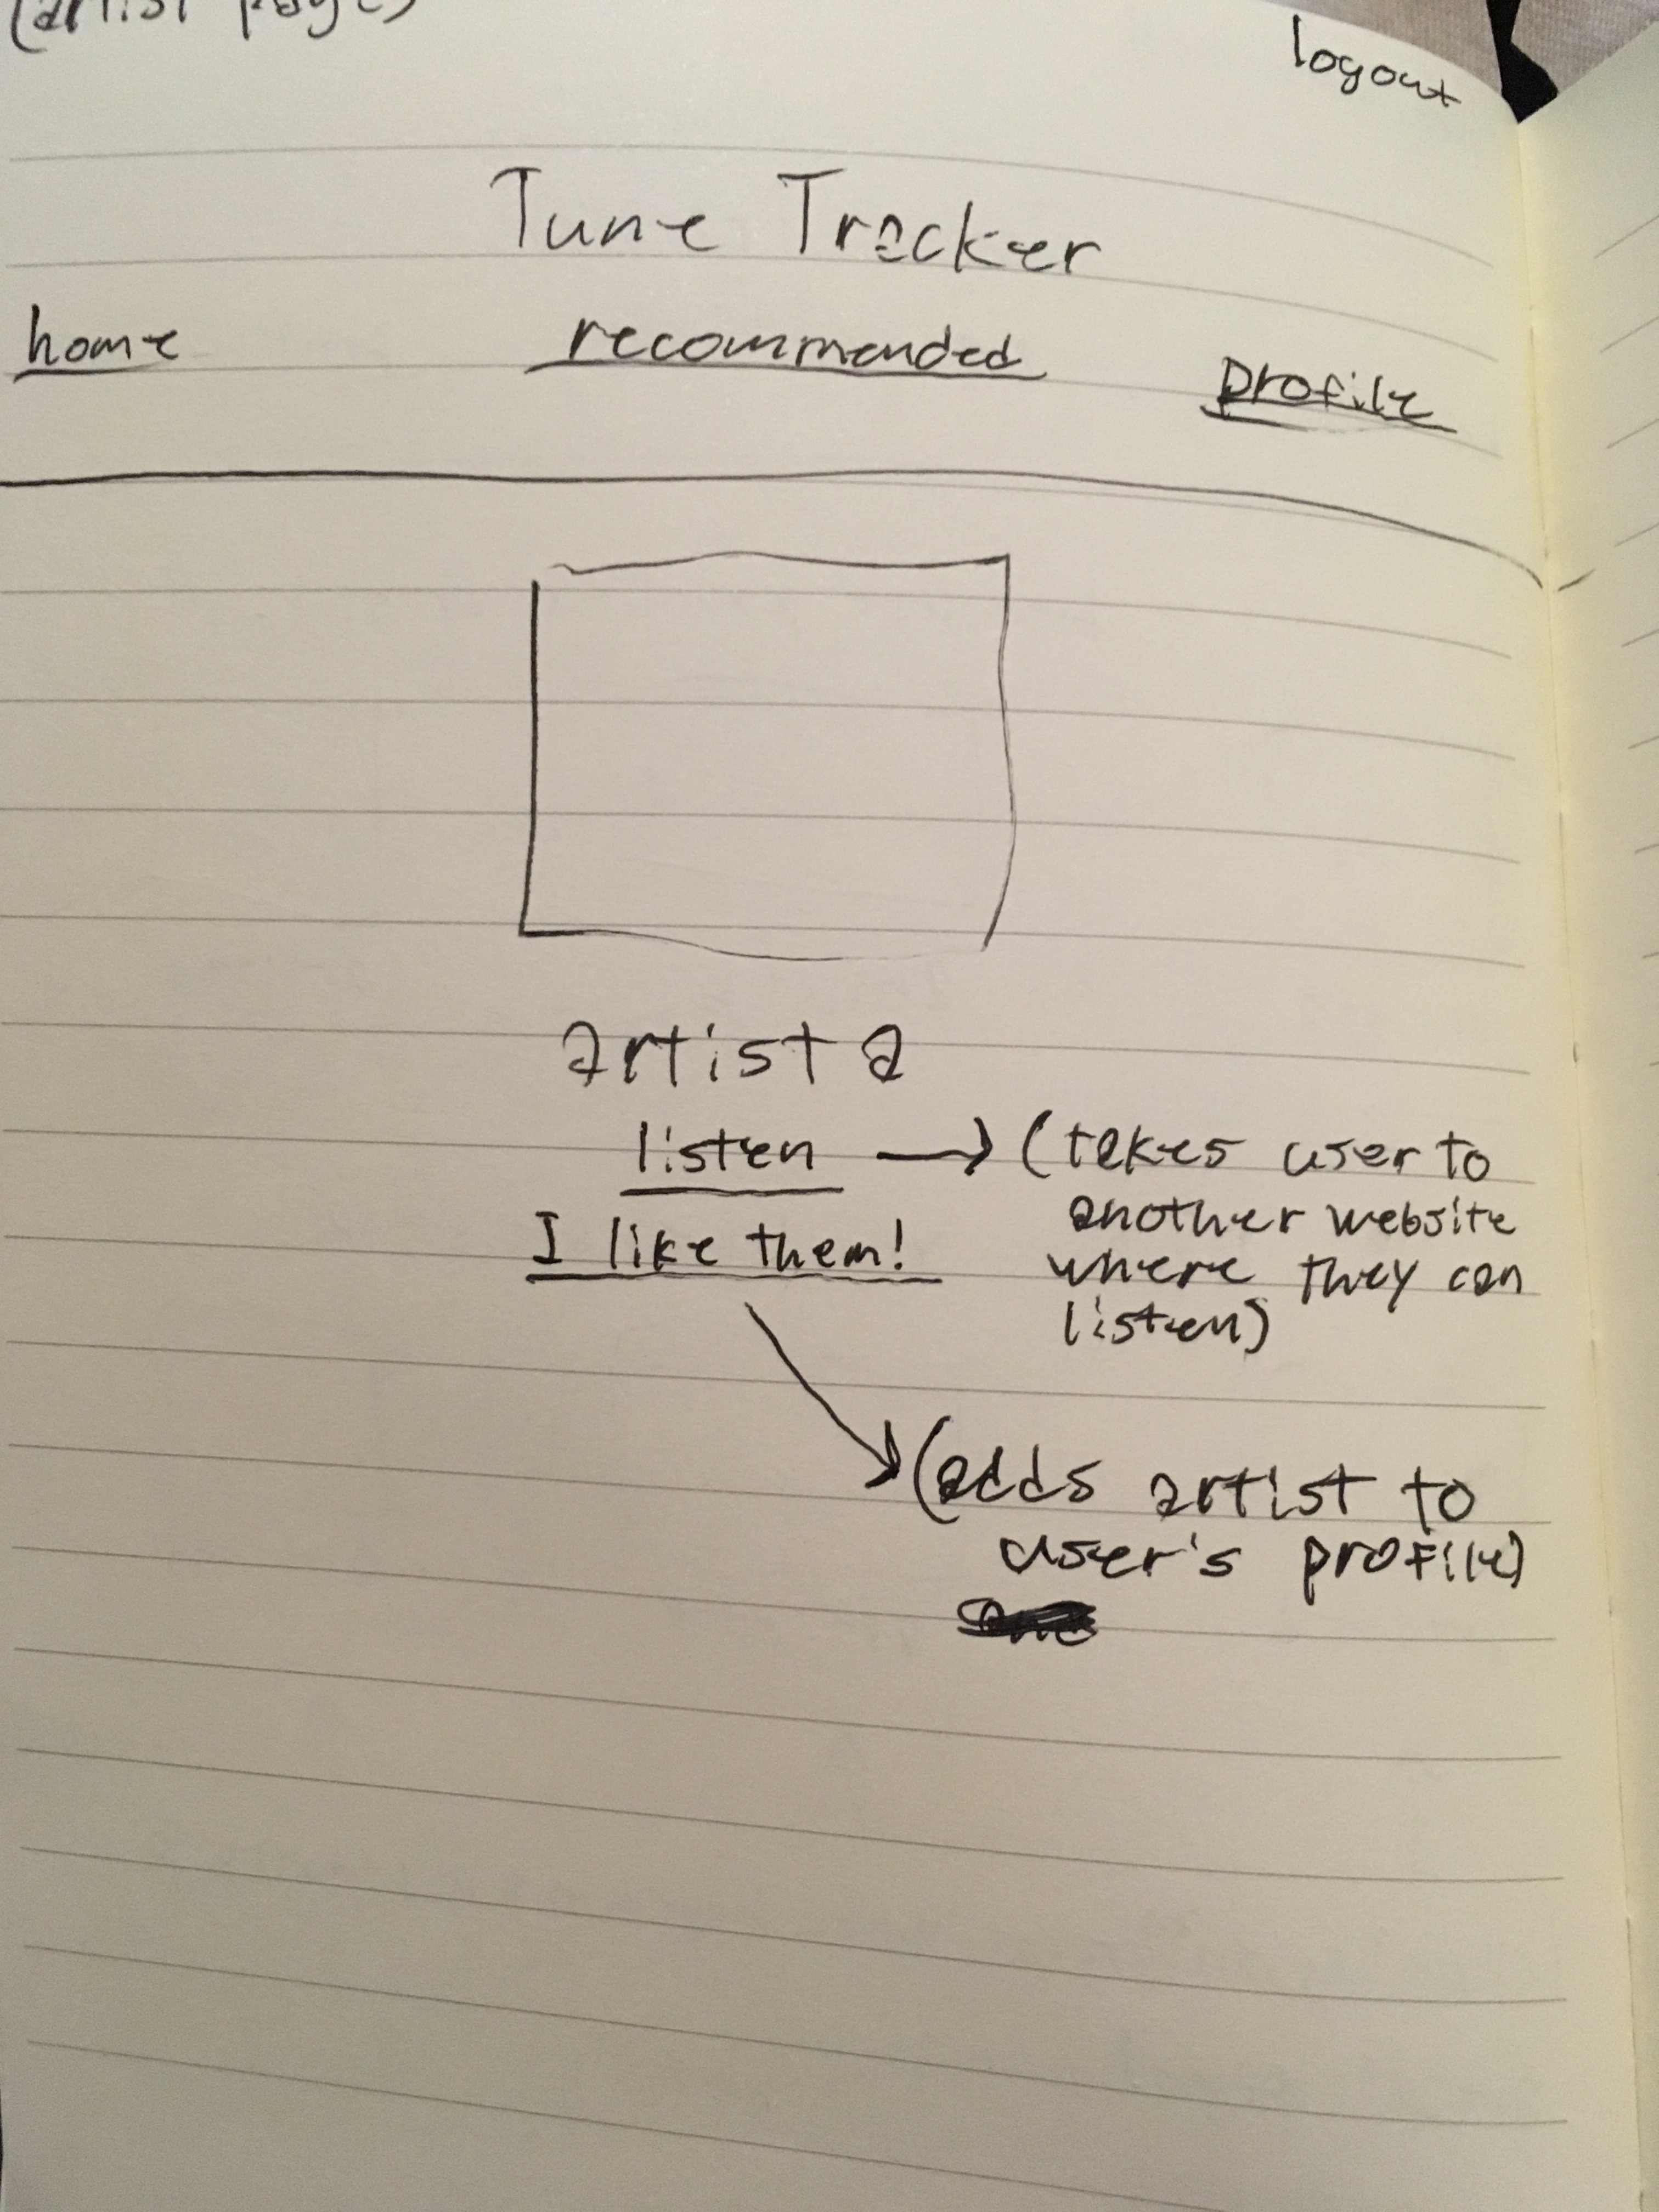 (artist page)
logout
Tune Tracker
home recommended profile
artist a
listen → (takes user to
another website
where they can
listen)
I like them!
(adds artist to
user's profile)